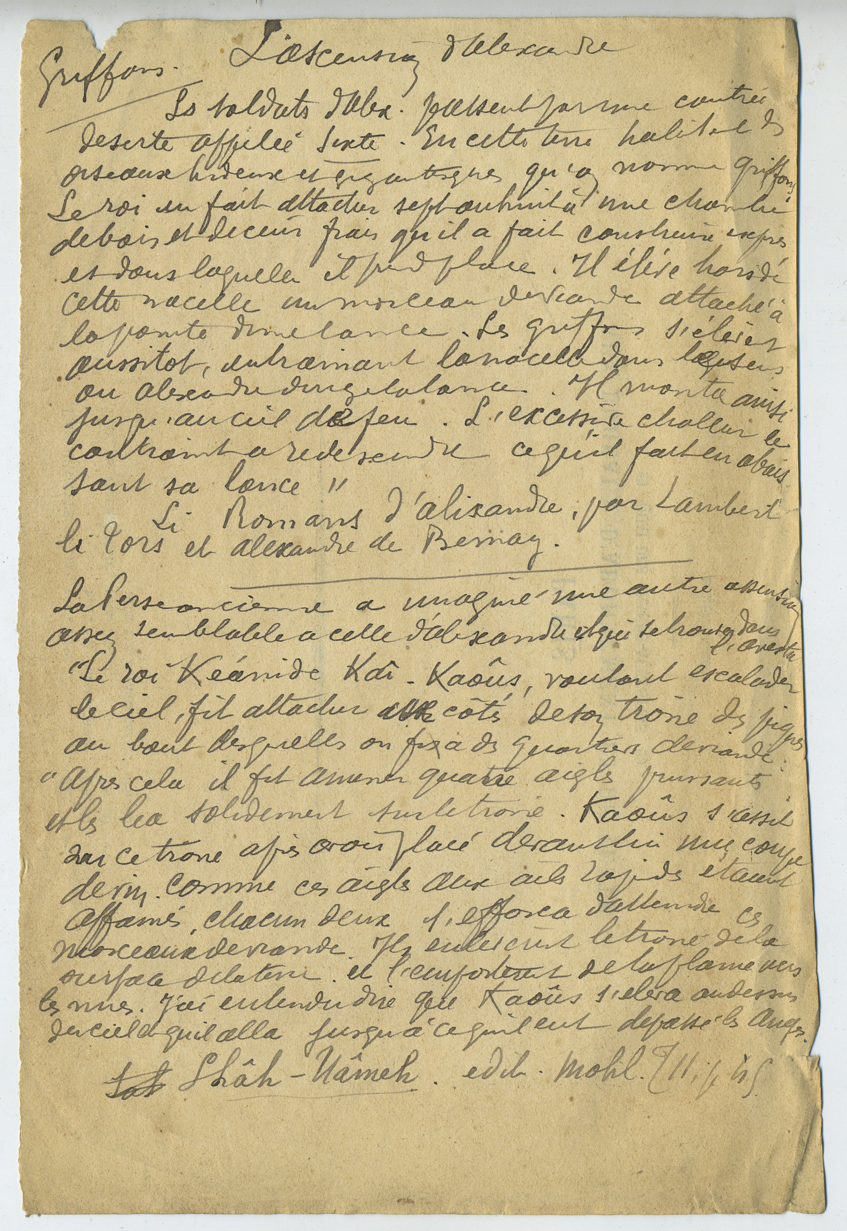 L'ascension d'Alexandre
Griffons.
Les soldats d'Alex. passent par une contrée
deserte appelée . En cette terre habitent des
oiseaux hideux et gigantesques qu'on nomme griffons
Le roi en fait attacher sept ou huit à une chambre
de bois et de cuir frais qu'il a fait construire exprès
et dans laquelle il prend place. Il élève hors de
cette nacelle un morceau de viande attaché à
la pointe d'une lance. Les griffons s'élèvent
aussitot, entrainant la nacelle dans le sens
ou Alexandre dirige la lance. Il monte ainsi
jusqu'au ciel de feu. L'excessive chaleur le
contraint a redescendre ce qu'il fait en abais
sant sa lance "
Li Romans d'Alixandre, par Lambert
li Tors et Alexandre de Bernay.
La Perse ancienne a imaginé une autre ascension
assez semblable a celle d'Alexandre et qui se trouve dans
l'Avesta
"Le roi Keánide Kaï-Kaoûs, voulant escalader
le ciel, fit attacher aux côtés de son trône des piques
au bout desquelles on fixa des quartiers de viande.
"Apres cela il fit amener quatre aigles puissants
et les lia solidement sur le trone. Kaoûs s'assit
sur ce trone après avoir placé devant lui une coupe
de vin. Comme ces aigles aux ailes rapides étaient
affamés, chacun d'eux s'efforca d'atteindre ces
morceaux de viande. Ils enlevèrent le trone de la
surface de la terre et l'emportèrent de la plaine vers
les nues. J'ai entendu dire que Kaoûs s'eleva au dessus
du ciel et qu'il alla jusqu'à ce qu'il eut depassé les anges.
Shâh-Nâmeh. edit. Mohl. T II, p. 45